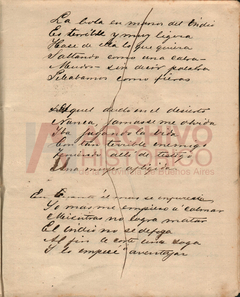 La bola en manos del Indio
Es terrible y muy ligera
Hace de ella lo que quiera
Saltando como una cabra
Mudos sin decir palabra
Peleabamos como fieras
Aquel duelo en el desierto
Nunca jamas se me olvida
Iba jugando la vida
Con tan terrible enemigo
Teniendo allí de testigo
A una muger
ARCHIVO
HISTÓRICO
Buenos Aires
se enfurecia
Yo mas me empiezo á calmar
Mientras no logra matar
El Indio no se desfoga
Al fin le corté una soga
Y lo empecé aventajar